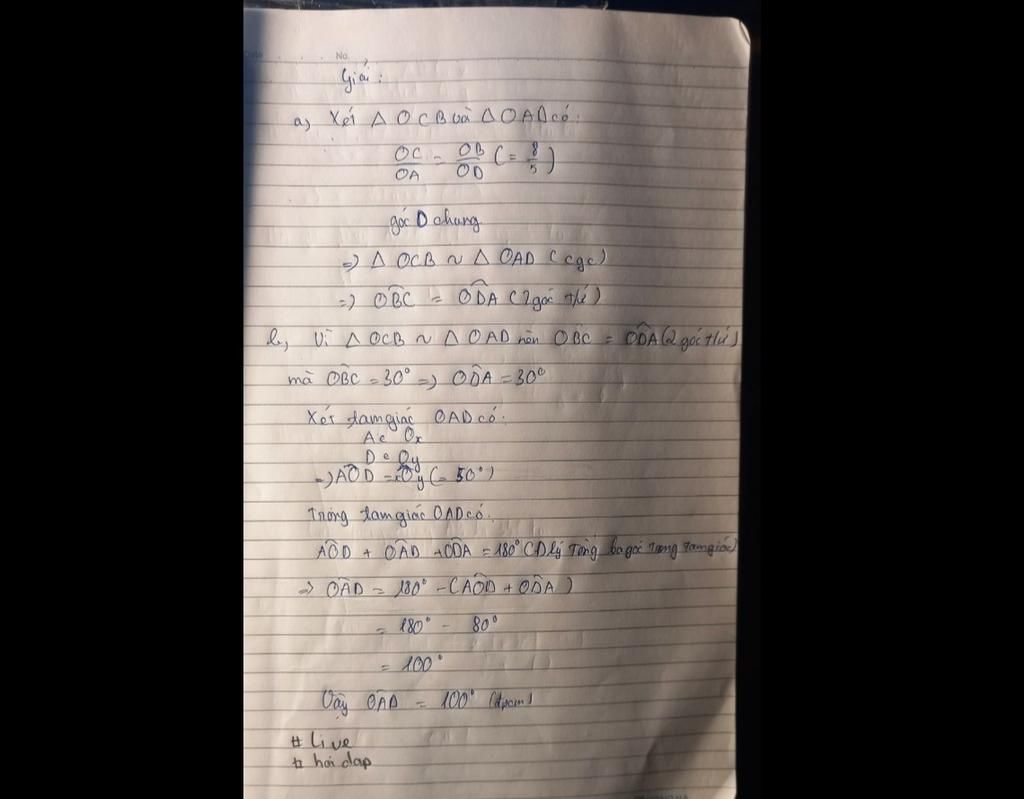 No.
Giải:
a) Xét Δ OCB và Δ OAD có:
OC/OA = OB/OD (= 8/5)
góc O chung
=> Δ OCB ~ Δ OAD (cgc)
=> OBC = ODA (2 góc t/ứ)
b) Vì Δ OCB ~ Δ OAD nên OBC = ODA (2 góc t/ứ)
mà OBC = 30° => ODA = 30°
Xét tam giác OAD có:
A ∈ Ox
D ∈ Oy
=> AOD = xOy (= 50°)
Trong tam giác OAD có.
AOD + OAD + ODA = 180° (Đ lý Tổng ba góc trong tam giác)
=> OAD = 180° - (AOD + ODA)
= 180° - 80°
= 100°
Vậy OAD = 100° (đpcm)
# Live
# hoi dap